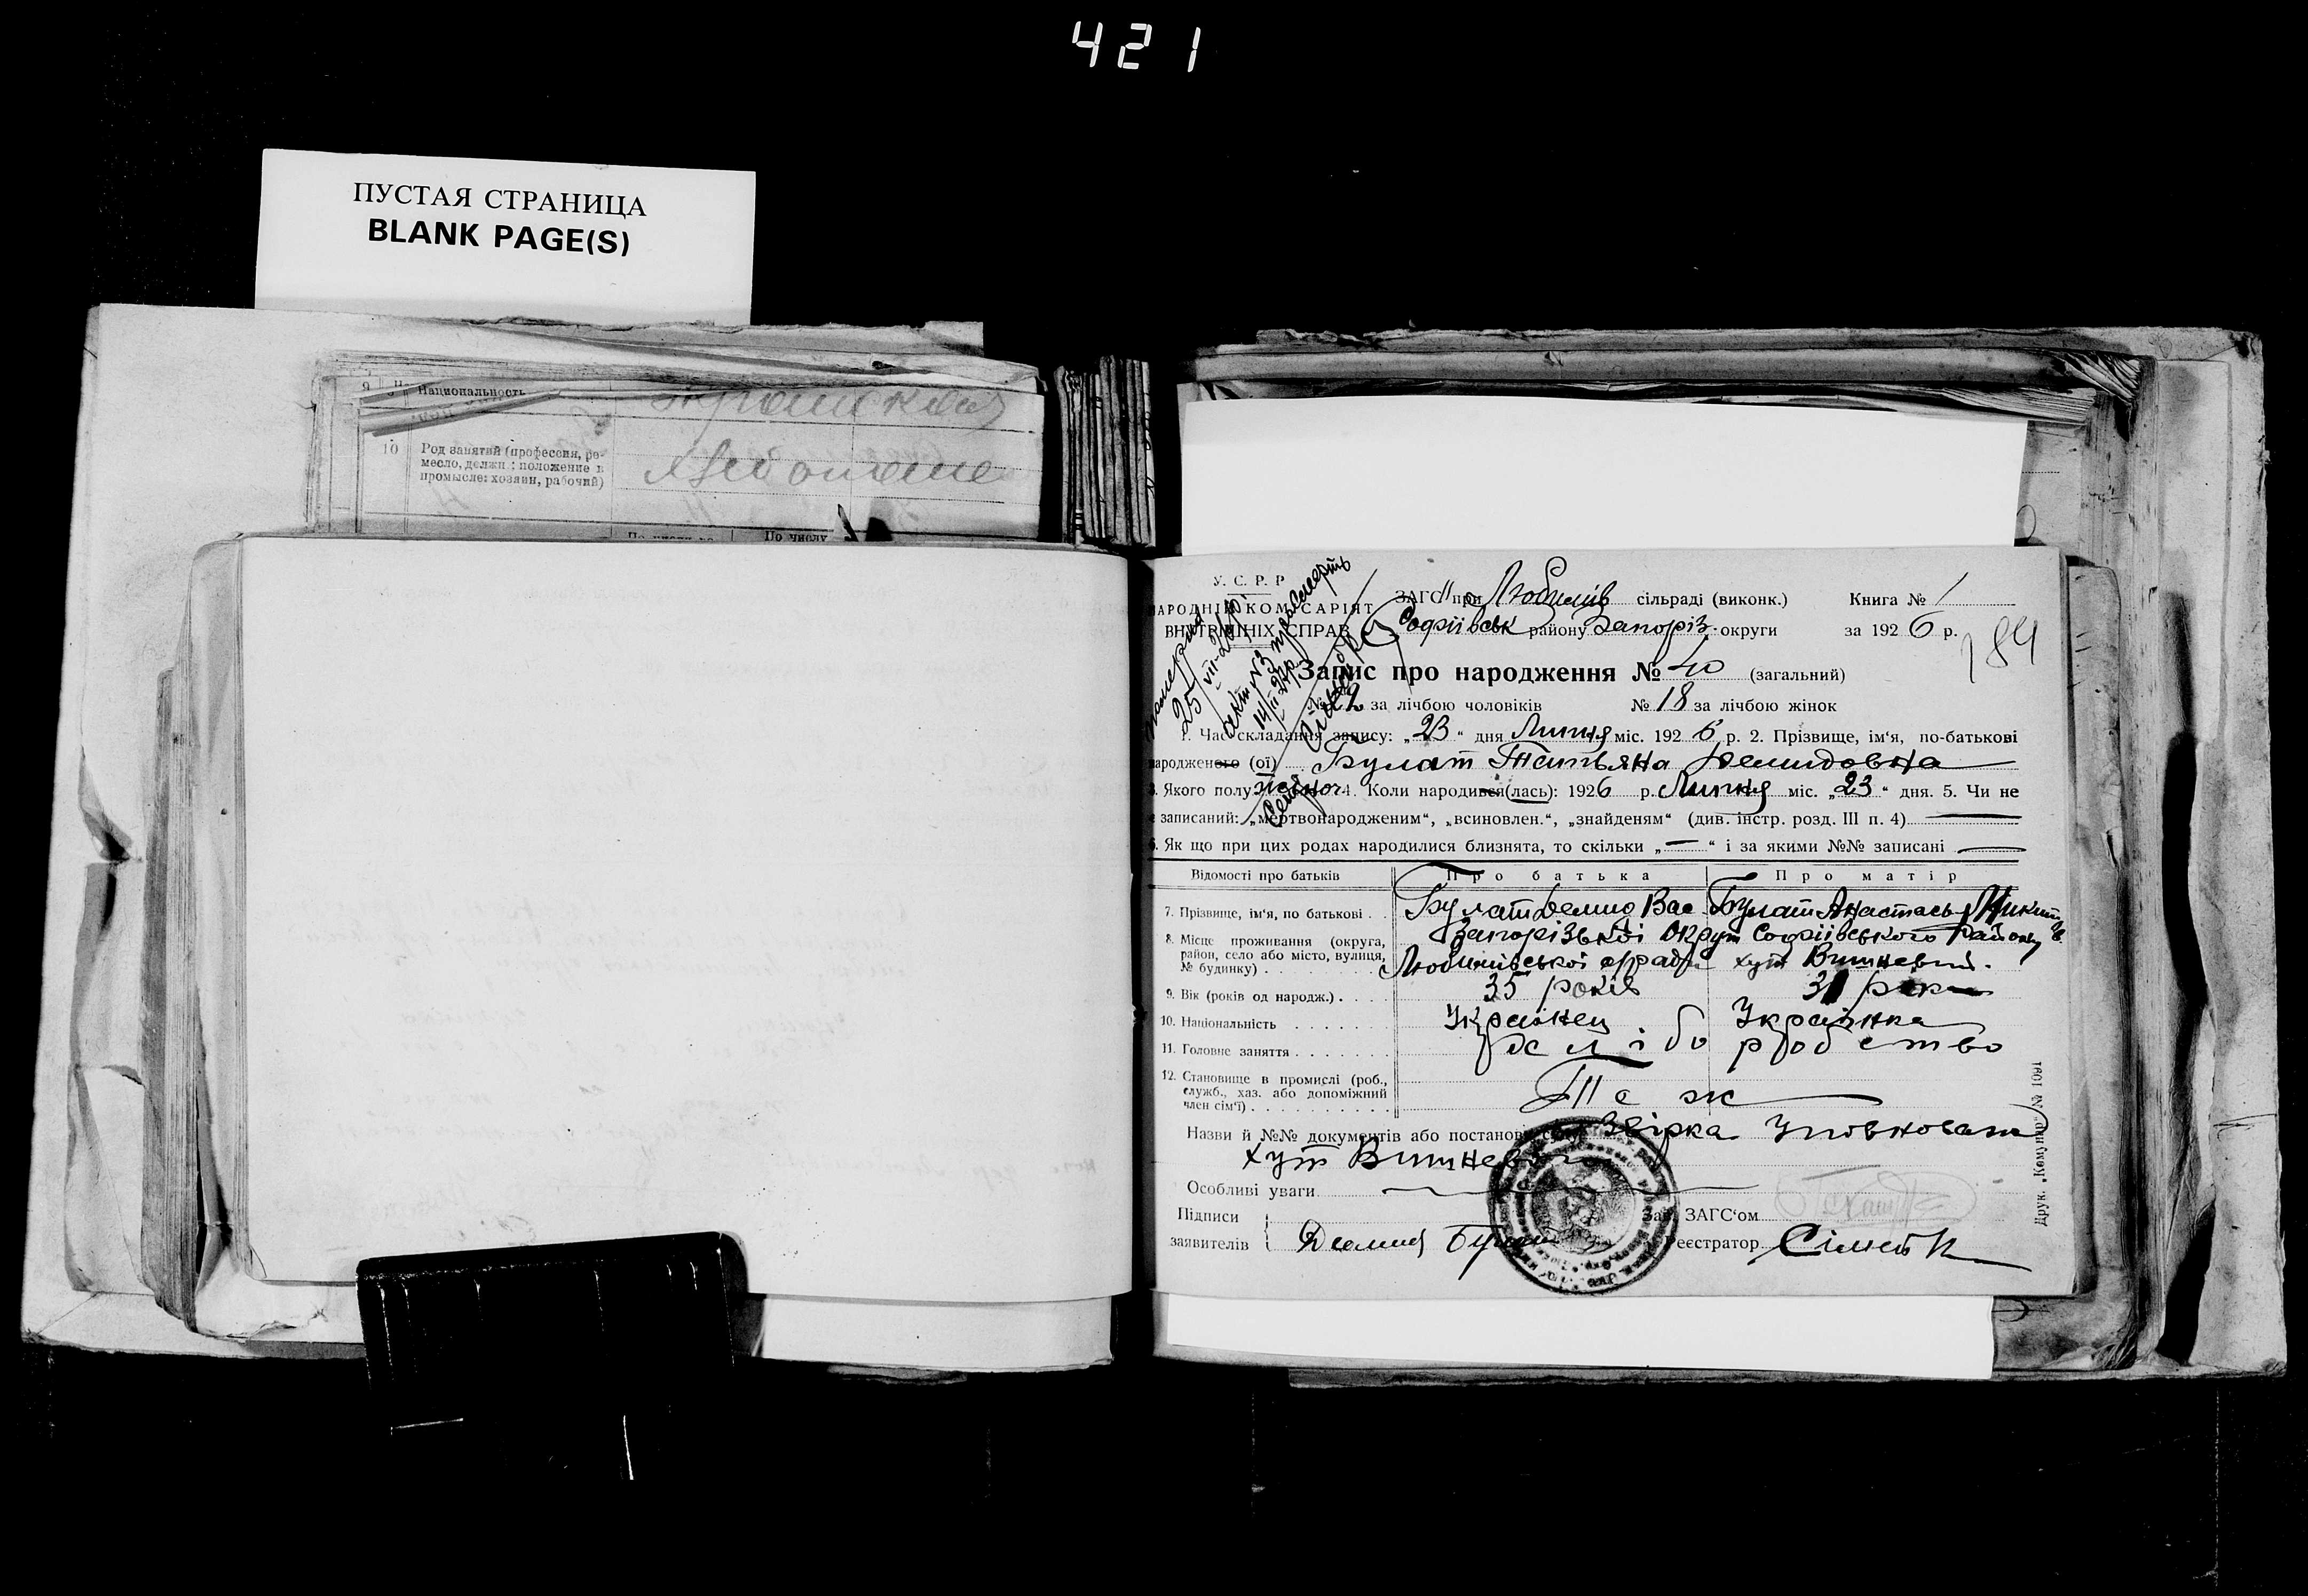 421
ПУСТАЯ СТРАНИЦА
BLANK PAGE(S)
9 Национальность
10 Род занятий (профессия, ре-
месло, должн.; положение в
промысле: хозяин, рабочий)
По числу
У. С. Р. Р
НАРОДНІЙ КОМІСАРІЯТ
ВНУТРІШНІХ СПРАВ
ЗАГС при Любимів сільраді (виконк.) Книга № 1
Софіївськ району Запоріз. округи за 1926 р.
184
Запис про народження № 40 (загальний)
№ 22 за лічбою чоловіків № 18 за лічбою жінок
1. Час складання запису: „23“ дня Липня міс. 1926 р. 2. Прізвище, ім‘я, по-батькові
народженого (ої) Булат Татьяна Демидовна
3. Якого полу жіноч 4. Коли народився(лась): 1926 р. Липня міс. „23“ дня. 5. Чи не
є записаний: „мертвонародженим“, „всиновлен.“, „знайденям“ (див. інстр. розд. III п. 4) —
6. Як що при цих родах народилися близнята, то скільки „—“ і за якими №№ записані —
Відомості про батьків Про батька Про матір
7. Прізвище, ім‘я, по батькові . . Булат Демид Вас Булат Анастасья Микит
8. Місце проживання (округа, Запорізької Округи Софіївського Району
район, село або місто, вулиця, Любимівської с/ради хут Вишневий.
№ будинку) . . . . . . .
9. Вік (років од народж.) . . . . 35 років 31 рік
10. Національність . . . . . . . Українец Українка
11. Головне заняття . . . . . . . хлібо робство
12. Становище в промислі (роб., Те ж
служб., хаз. або допоміжний
член сім‘ї) . . . . . . . . . .
Назви й №№ документів або постанови суду Звірка Уповноваж
хут Вишневого
Особливі уваги —
Підписи Зав. ЗАГС‘ом
заявителів Демид Булат Реєстратор
Друк. „Комунар“ № 1091